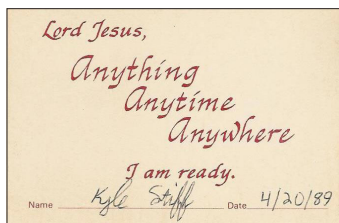 Lord Jesus,
Anything
Anytime
Anywhere
I am ready.
Name Kyle Stiff Date 4/20/89